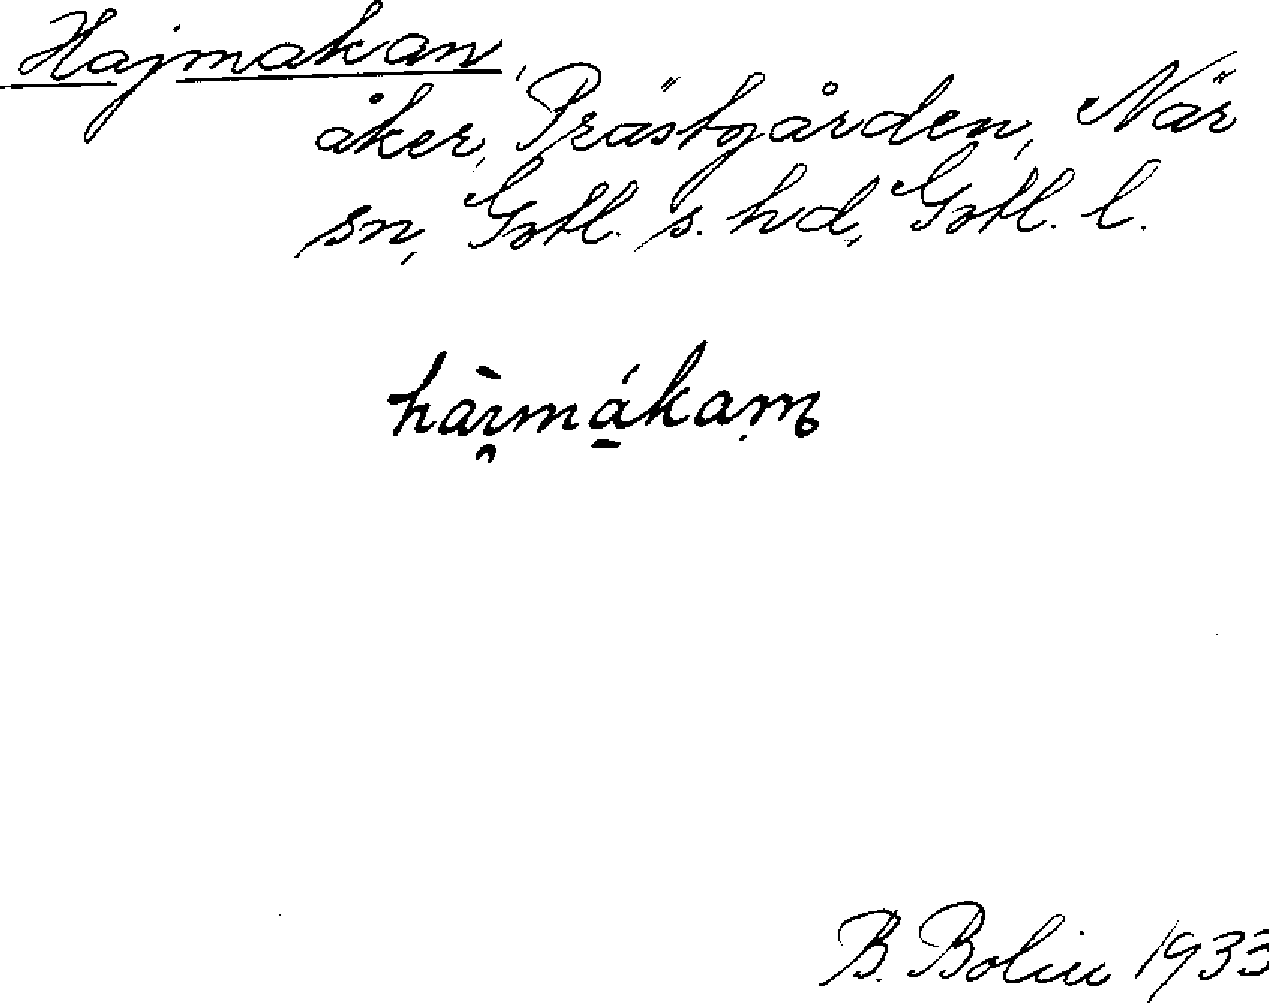 Hajmakan,
åker, Prästgården, När
sn, Gotl. s. hd, Gotl. l.
B. Bolin 1933